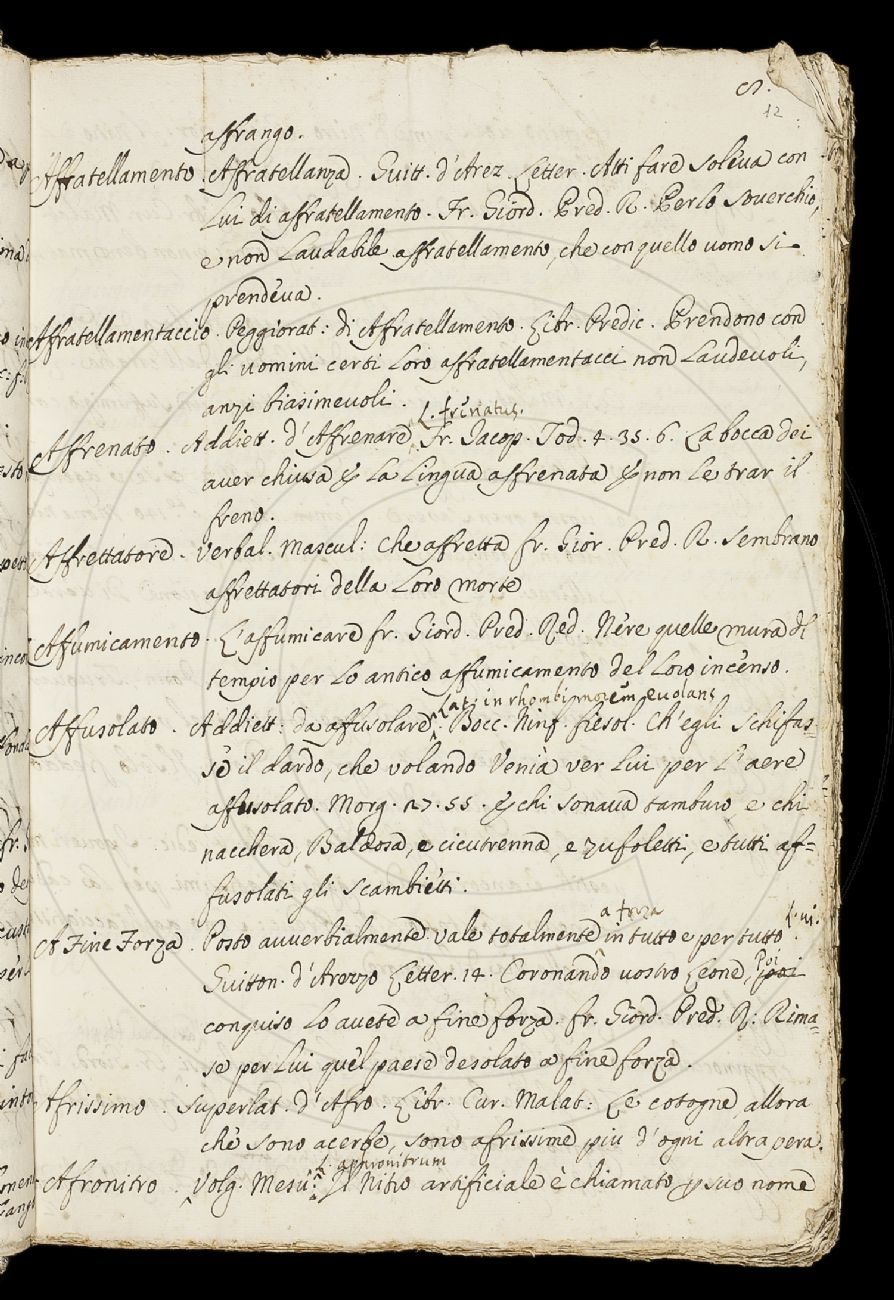 12
affrango.
Affratellamento. Affratellanza. Guitt. d'Arez. Letter. Atti fare soleva con
Lui di affratellamento. Fr. Giord. Pred. R. Perlo soverchio,
e non Laudabile affratellamento, che con quello uomo si
prendeva.
Affratellamentaccio. Peggiorat: di Affratellamento. Libr. Predic. Prendono con
gli uomini certi Loro affratellamentacci non Laudevoli,
anzi biasimevoli.
L. frenatus.
Affrenato. Addiett. d'Affrenare, Fr. Iacop. Tod. 4. 35. 6. La bocca dei
aver chiusa & La Lingua affrenata & non le trar il
freno.
Affrettatore. Verbal. Mascul: Che affretta fr. Gior. Pred. R. Sembrano
affrettatori della Loro morte
Affumicamento. L'affumicare fr. Giord. Pred. Red. Nere quelle mura di
tempio per Lo antico affumicamento del Loro incenso.
Lat: in rhombi morem evolans
Affusolato. Addiett: da affusolare. Bocc. Ninf. fiesol. Ch'egli schifas-
se il dardo, che volando Venia ver Lui per L'aere
affusolato. Morg. 27. 55. & chi sonava tamburo e chi
nacchera, Baldosa, e cicutrenna, e zufoletti, e tutti af=
fusolati gli scambietti.
a forza
A Fine Forza. Posto avverbialmente vale totalmente in tutto e per tutto
Guitton. d'Arezzo Letter. 14. Coronando vostro Leone, poi
Poi
conquiso Lo avete a fine forza. fr. Giord. Pred. R: Rima=
se per Lui quel paese desolato a fine forza.
Afrissimo. Superlat. d'Afro. Libr. Cur. Malat: Le cotogne allora
che sono acerbe, sono afrissime piu d'ogni altra pera.
L. aphronitrum
Afronitro. Volg. Mesu: Il Nitro artificiale è chiamato p suo nome